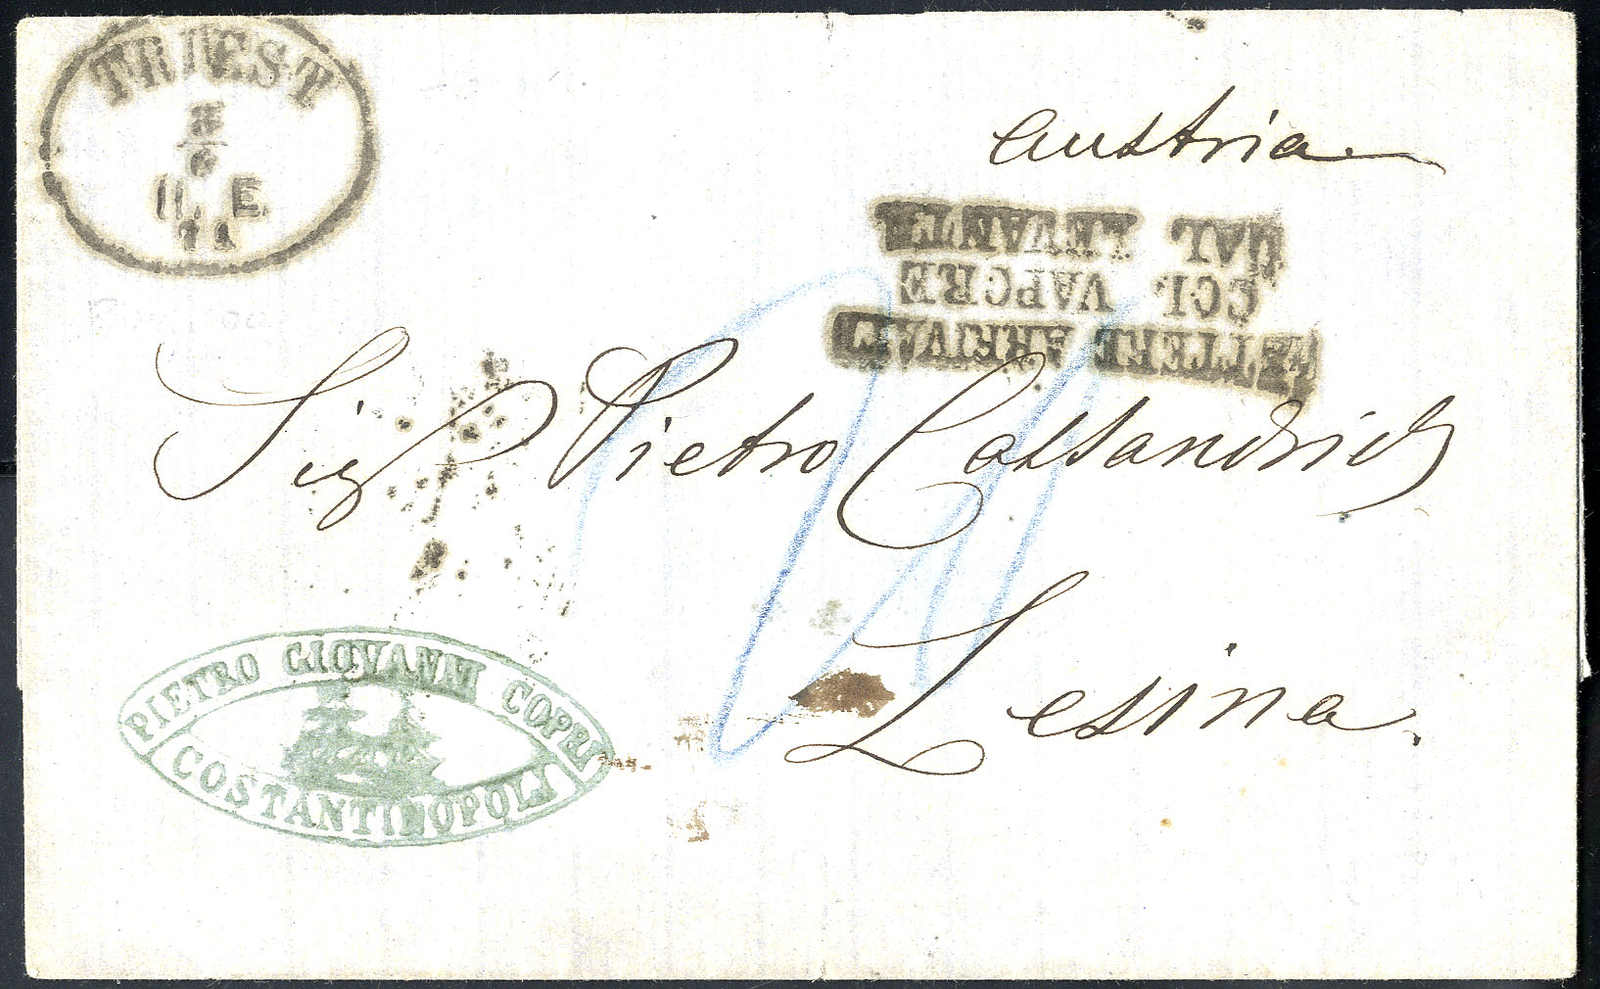 TRIEST
6
II. E.
71
austria
LETTERE ARRIVATE
COL VAPORE
DAL LEVANTE
Sig Pietro Cassandrich
Lesina.
PIETRO GIOVANNI COPRI
COSTANTINOPOLI